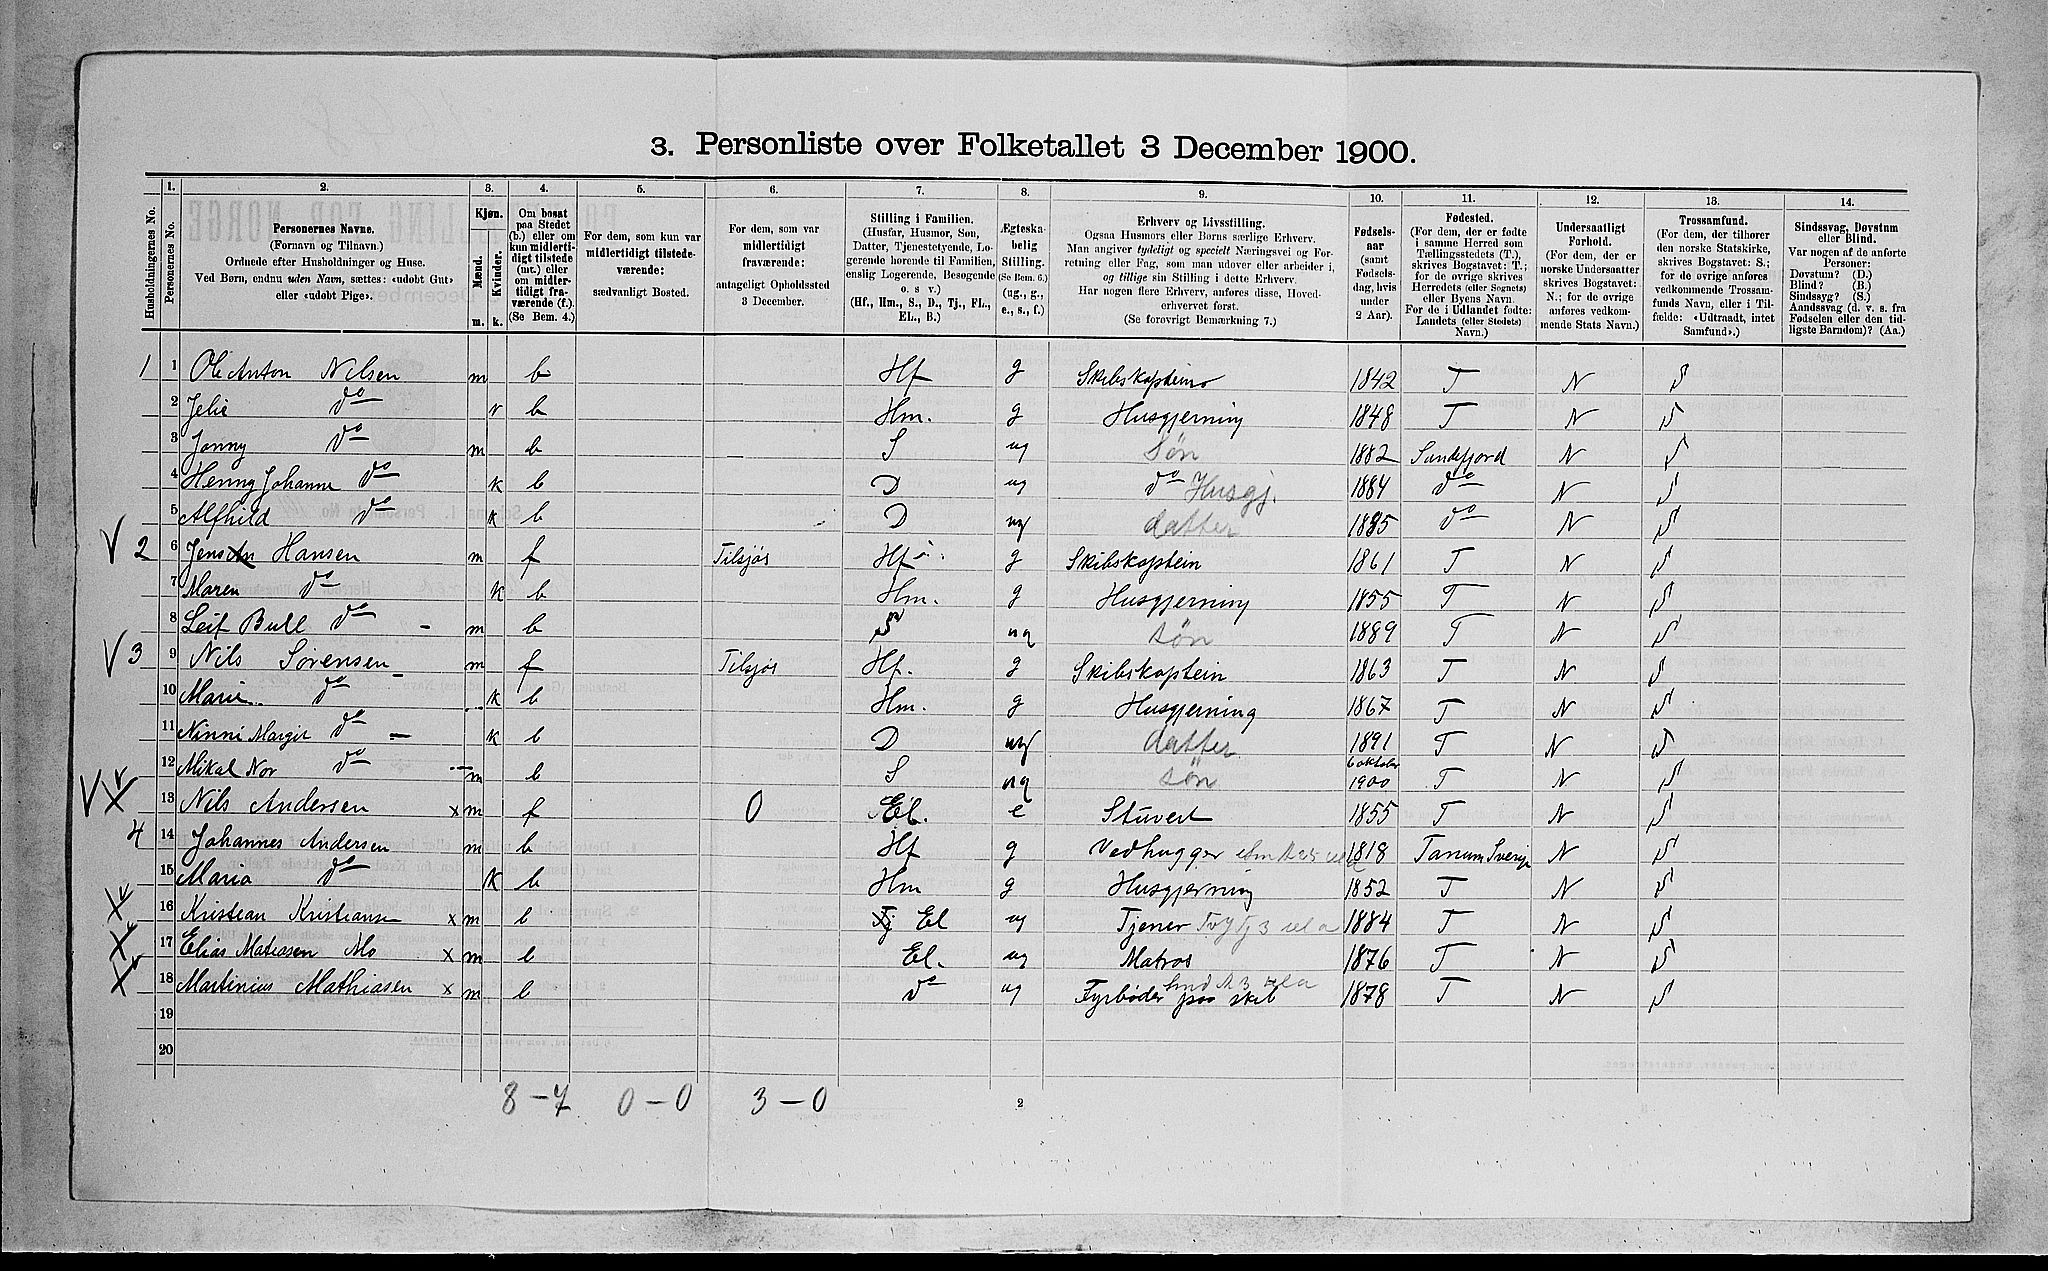 3. Personliste over Folketallet 3 December 1900.
Husholdningernes No.
1. Personernes No.
2. Personernes Navne. (Fornavn og Tilnavn.) Ordnede efter Husholdninger og Huse. Ved Børn, endnu uden Navn, sættes: «udobt Gut» eller «udobt Pige».
3. Kjøn. Mænd. m. Kvinder. k.
4. Om bosat paa Stedet (b.) eller om kun midlertidigt tilstede (mt.) eller om midlertidigt fraværende (f.). (Se Bem. 4.)
5. For dem, som kun var midlertidigt tilstedeværende: sædvanligt Bosted.
6. For dem, som var midlertidigt fraværende: antageligt Opholdssted 3 December.
7. Stilling i Familien. (Husfar, Husmor, Søn, Datter, Tjenestetyende, Logerende hørende til Familien, enslig Logerende, Besøgende o. s v.) (Hf., Hm., S., D., Tj., FL., EL., B.)
8. Ægteskabelig Stilling. (Se Bem. 6.) (ug., g., e., s., f.)
9. Erhverv og Livsstilling. Ogsaa Husmors eller Børns særlige Erhverv. Man angiver tydeligt og specielt Næringsvei og Forretning eller Fag, som man udover eller arbeider i, og tillige sin Stilling i dette Erhverv. Har nogen flere Erhverv, anføres disse, Hovederhvervet først. (Se forøvrigt Bemærkning 7.)
10. Fødselsaar (samt Fødselsdag, hvis under 2 Aar).
11. Fødested. (For dem, der er fødte i samme Herred som Tællingsstedets (T.), skrives Bogstavet: T.; for de øvrige skrives Herredets (eller Sognets) eller Byens Navn. For de i Udlandet fødte: Landets (eller Stedets) Navn.)
12. Undersaatligt Forhold. (For dem, der er norske Undersaatter skrives Bogstavet: N.; for de øvrige anføres vedkommende Stats Navn.)
13. Trossamfund. (For dem, der tilhører den norske Statskirke, skrives Bogstavet: S.; for de øvrige anføres vedkommende Trossamfunds Navn, eller i Tilfælde: «Udtraadt, intet Samfund».)
14. Sindssvag, Døvstum eller Blind. Var nogen af de anførte Personer: Døvstum? (D.) Blind? (B.) Sindssyg? (S.) Aandssvag (d. v. s. fra Fødselen eller den tidligste Barndom)? (Aa.)
1 1 Ole Anton Nilsen m b Hf g Skibskaptein 1842 T N S
2 Jelie do k b Hm. g Husgjerning 1848 T N S
3 Jonny do m b S ug Søn 1882 Sandefjord N S
4 Henny Johanne do k b D ug do Husgj. 1884 do N S
5 Alfhild do k b D ug datter 1885 do N S
V 2 6 Jens Hansen m f Tilsjøs Hf g Skibskaptein 1861 T N S
7 Maren do k b Hm. g Husgjerning 1855 T N S
8 Leif Bull do m b S ug søn 1889 T N S
V 3 9 Nils Sørensen m f Tilsjøs Hf. g Skibskaptein 1863 T N S
10 Marie do k b Hm. g Husgjerning 1867 T N S
11 Ninni Margit do k b D ug datter 1891 T N S
12 Mikal Nor do m b S ug søn 6 oktober 1900 T N S
V 13 Nils Andersen x m f 0 El. e Stuvert 1855 T N S
4 14 Johannes Andersen m b Hf g Vedhugger 1818 Tanum Sverige N S
15 Maria do k b Hm g Husgjerning 1852 T N S
16 Kristian Kristiansen x m b Tj El ug Tjener 1884 T N S
17 Elias Matiasen Mo x m b El. ug Matros 1876 T N S
18 Martinius Mathiasen x m b do ug Fyrbøder paa skib 1878 T N S
19
20
8 – 7 0 – 0 3 – 0
2